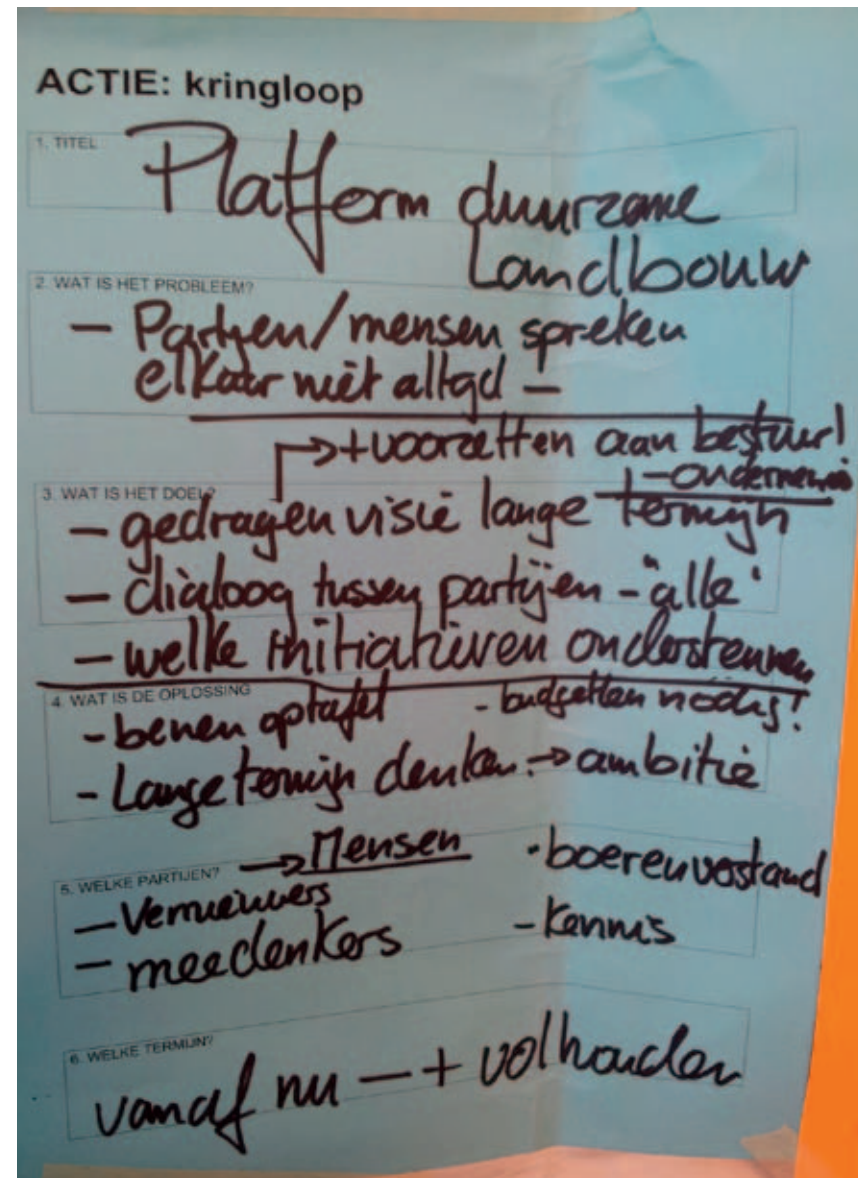 ACTIE: kringloop
1. TITEL
Platform duurzame
Landbouw
2. WAT IS HET PROBLEEM?
– Partijen/mensen spreken
elkaar niet altijd –
→ + voorzetten aan bestuur!
3. WAT IS HET DOEL?
– gedragen visie lange termijn
– dialoog tussen partijen – "alle"
– welke initiatieven ondersteunen
4. WAT IS DE OPLOSSING
- benen op tafel - budgetten nodig!
- Lange termijn denken → ambitie
5. WELKE PARTIJEN? → Mensen · boerenverstand
– Vernieuwers
– meedenkers - Kennis
6. WELKE TERMIJN?
vanaf nu – + volhouden